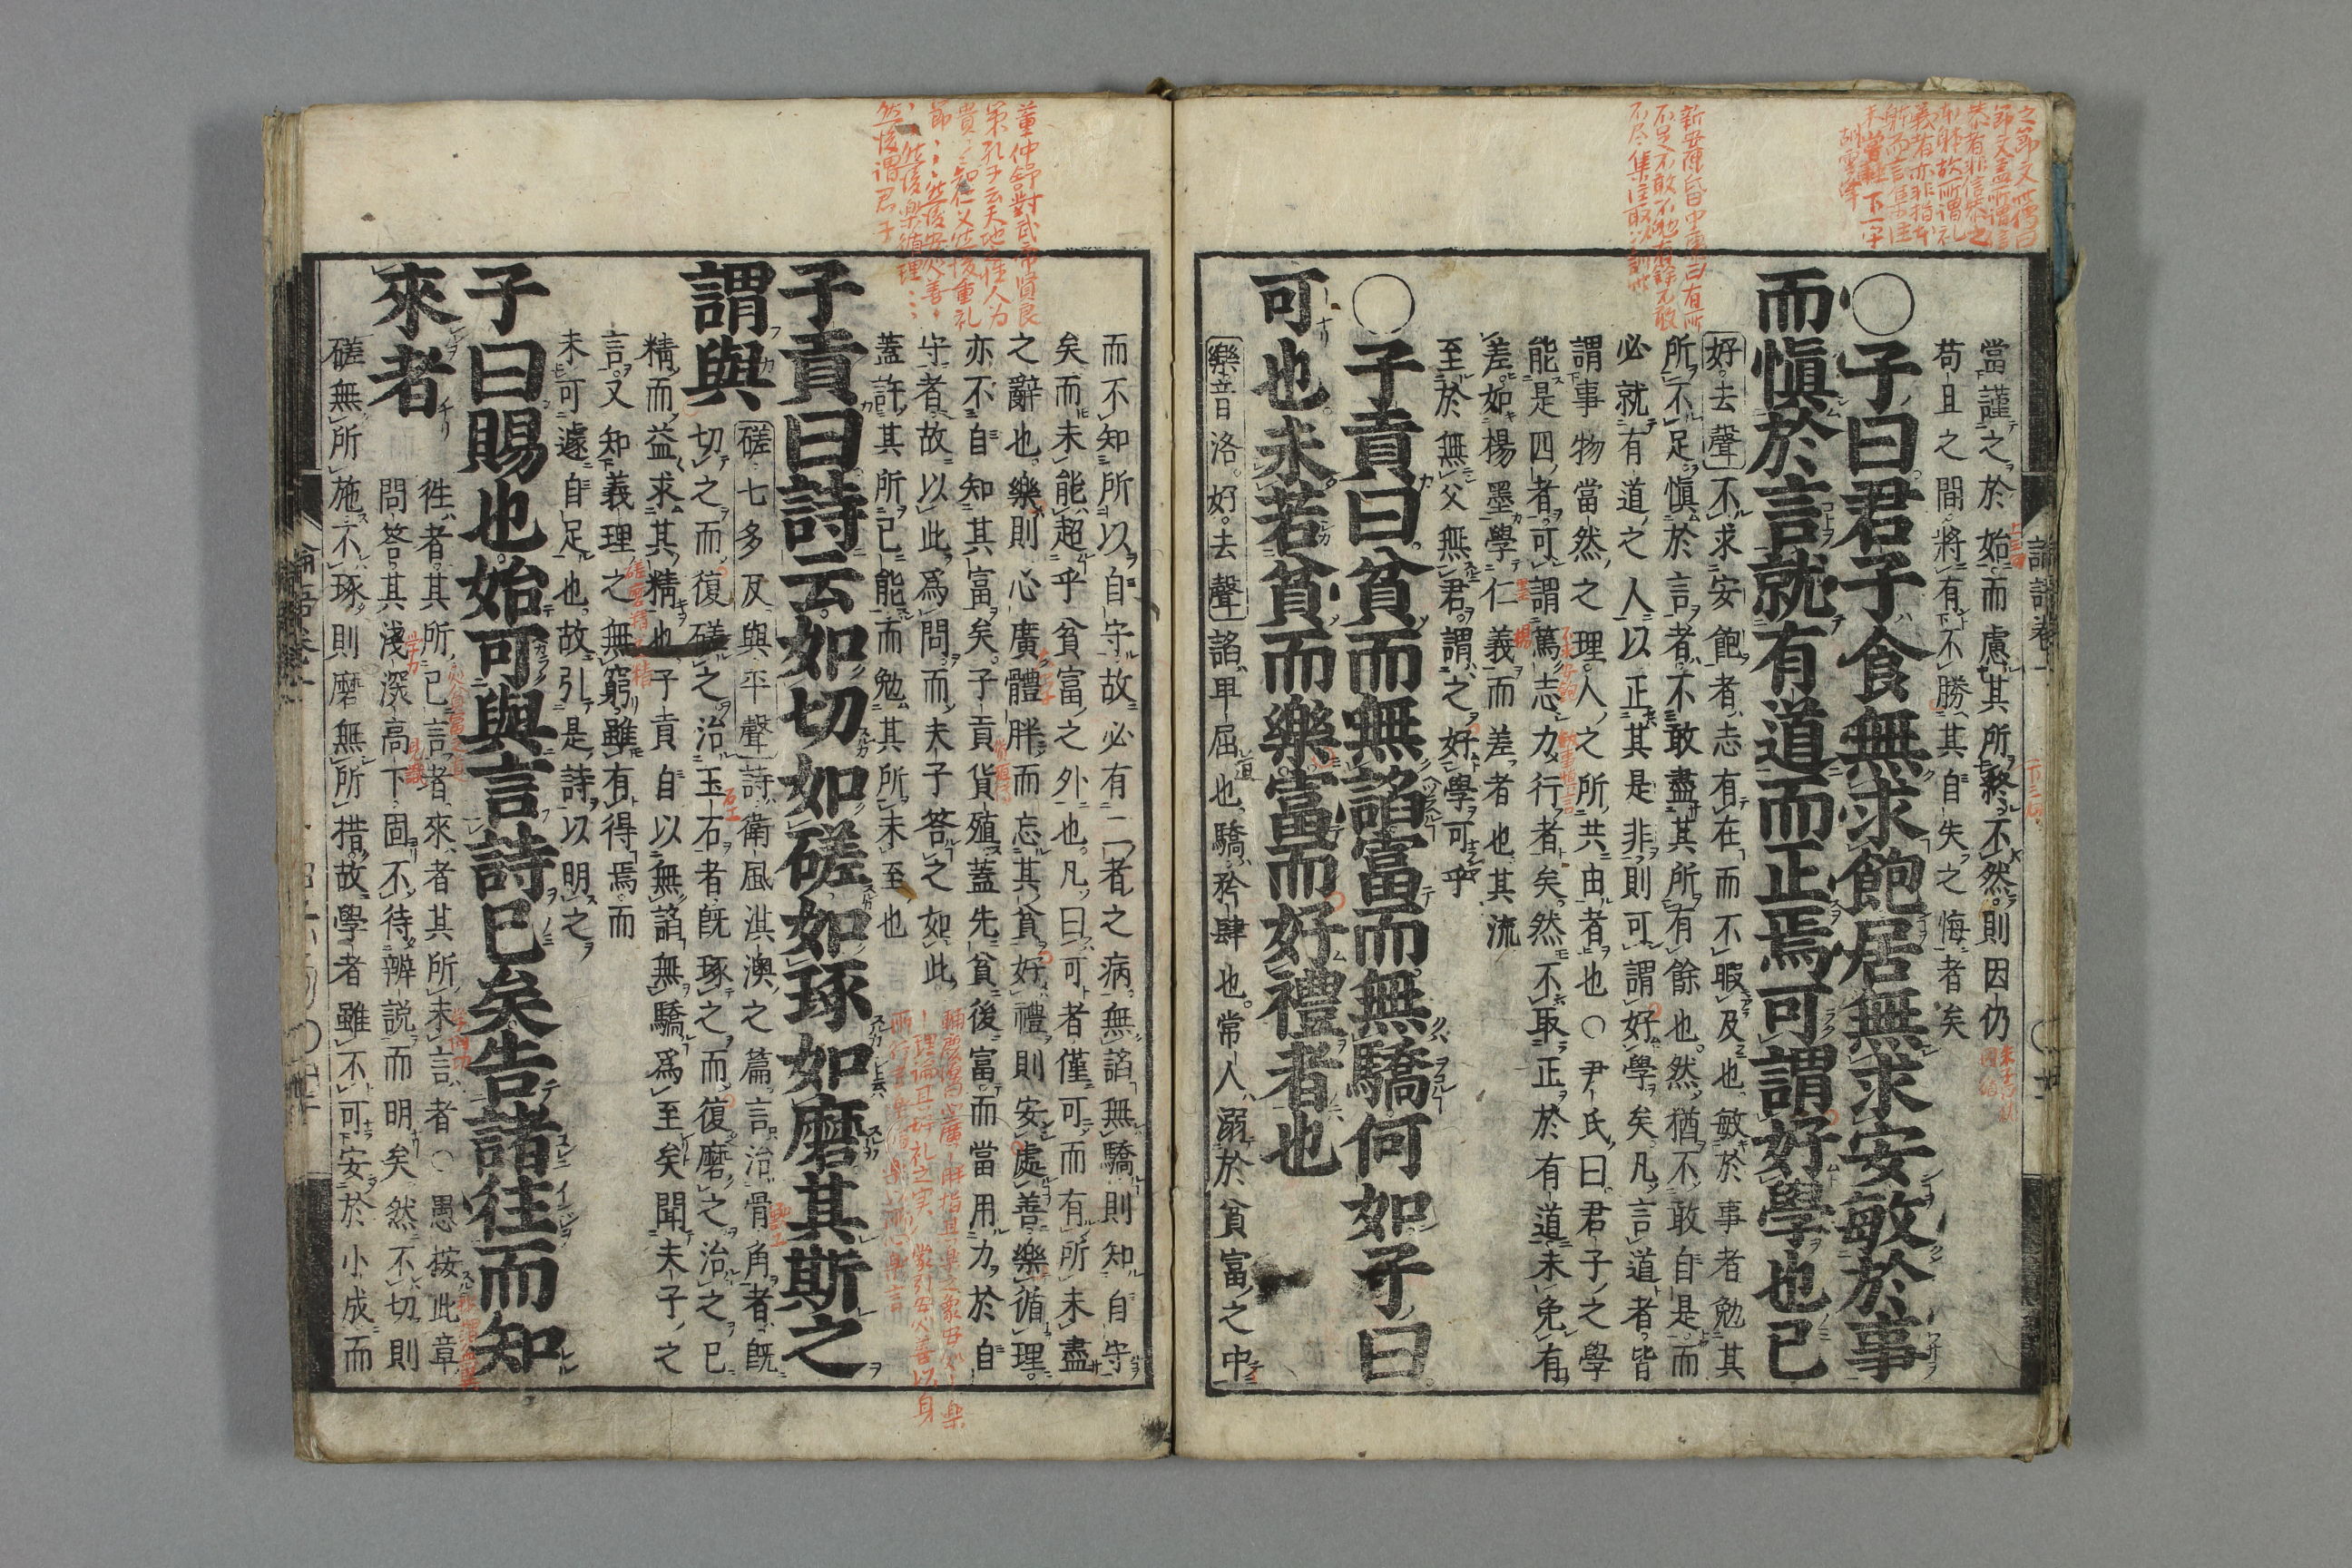 當謹之於始而慮其所終不然則因仍
苟且之間將有不勝其自失之悔者矣
○子曰君子食無求飽居無求安敏於事
而慎於言就有道而正焉可謂好學也已
好去聲不求安飽者志有在而不暇及也敏於事者勉其
所不足慎於言者不敢盡其所有餘也然猶不敢自是而
必就有道之人以正其是非則可謂好學矣凡言道者皆
謂事物當然之理人之所共由者也○尹氏曰君子之學
能是四者可謂篤志力行者矣然不取正於有道未免有
差如楊墨學仁義而差者也其流
至於無父無君謂之好學可乎
○子貢曰貧而無諂富而無驕何如子曰
可也未若貧而樂富而好禮者也
樂音洛好去聲諂卑屈也驕矜肆也常人溺於貧富之中
而不知所以自守故必有二者之病無諂無驕則知自守
矣而未能超乎貧富之外也凡曰可者僅可而有所未盡
之辭也樂則心廣體胖而忘其貧好禮則安處善樂循理
亦不自知其富矣子貢貨殖蓋先貧後富而當用力於自
守者故以此爲問而夫子答之如此
蓋許其所已能而勉其所未至也
子貢曰詩云如切如磋如琢如磨其斯之
謂與
磋七多反與平聲詩衛風淇澳之篇言治骨角者既
切之而復磋之治玉石者既琢之而復磨之治之已
精而益求其精也子貢自以無諂無驕爲至矣聞夫子之
言又知義理之無窮雖有得焉而
未可遽自足也故引是詩以明之
子曰賜也始可與言詩已矣告諸往而知
來者
往者其所已言者來者其所未言者○愚按此章
問答其淺深高下固不待辨説而明矣然不切則
磋無所施不琢則磨無所措故學者雖不可安於小成而